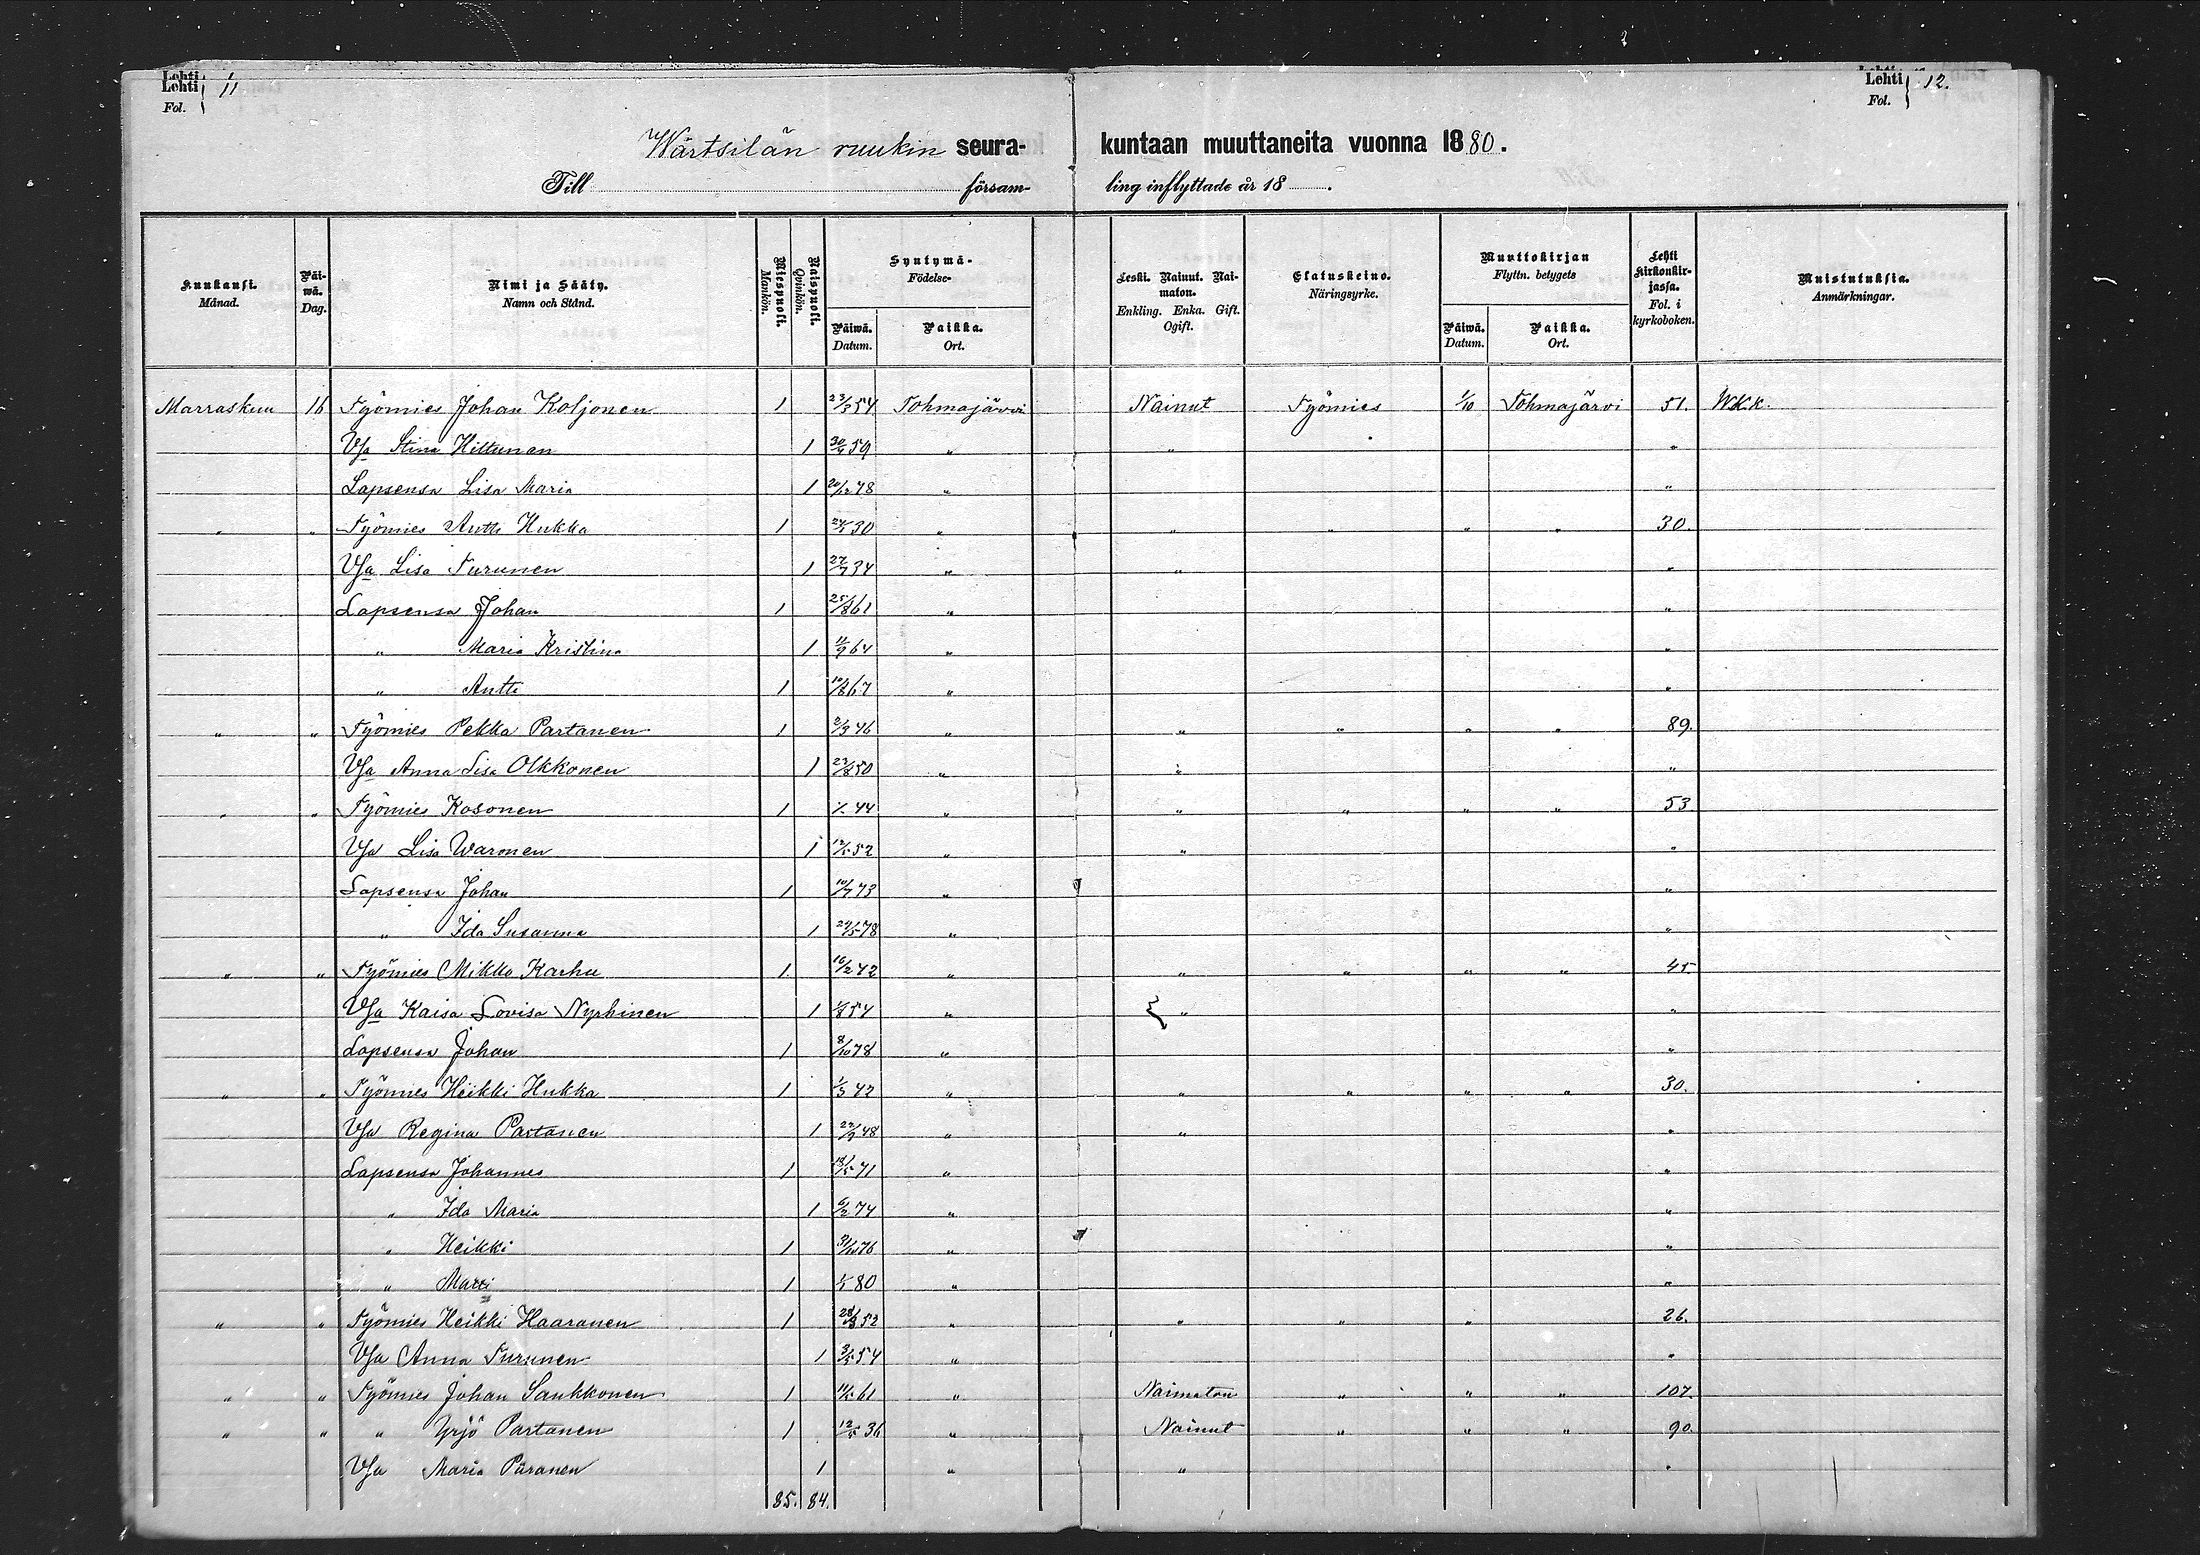 Lehti Fol. 11
Lehti Fol. 12.
Wärtsilän ruukin seura- kuntaan muuttaneita vuonna 1880.
Till försam- ling inflyttade år 18 .
Kuukausi. Månad. Päi-wä. Dag. Nimi ja Sääty. Namn och Stånd. Miespuoli. Mankön. Naispuoli. Qvinkön. Syntymä- Födelse- Päiwä. Datum. Paikka. Ort. Leski. Nainut. Nai-maton. Enkling. Enka. Gift. Ogift. Elatuskeino. Näringsyrke. Muuttokirjan Flyttn. betygets Päiwä. Datum. Paikka. Ort. Lehti kirkonkir-jassa. Fol. i kyrkoboken. Muistutuksia. Anmärkningar.
Marraskuu 16 Työmies Johan Koljonen 1 23/3 54 Tohmajärvi Nainut Työmies 1/10 Tohmajärvi 51. W.k.k.
Vsa Stina Hiltunen 1 59 " " "
Lapsensa Lisa Maria 1 20/12 78 " "
" " Työmies Antti Hukka 1 30 " " " " " 30.
Vsa Lisa Turunen 1 27/7 34 " " "
Lapsensa Johan 1 25/8 61 " "
" Maria Kristina 1 11/9 64 " "
" Antti 1 10/8 67 " "
" " Työmies Pekka Partanen 1 2/3 46 " " " " " 89.
Vsa Anna Lisa Olkkonen 1 23/8 50 " " "
" " Työmies Kosonen 1 44 " " " " " 53
Vsa Lisa Waronen 1 12/5 52 " " "
Lapsensa Johan 1 10/7 73 " "
" Ida Susanna 1 24/5 78 " "
" " Työmies Mikko Karhu 1 16/2 42 " " " " " 45
Vsa Kaisa Lovisa Nyrhinen 1 1/8 54 " " "
Lapsensa Johan 1 8/10 78 " "
" " Työmies Heikki Hukka 1 1/3 42 " " " " " 30.
Vsa Regina Partanen 1 27/9 48 " " "
Lapsensa Johannes 1 18/5 71 " "
" Ida Maria 1 6/2 74 " "
" Heikki 1 31/10 76 " "
" Matti 1 80 " "
" " Työmies Heikki Haaranen 1 52 " " " " 26.
Vsa Anna Turunen 1 3/5 54 " "
" " Työmies Johan Saukkonen 1 61 " Naimaton " " " 107.
" " " Yrjö Partanen 1 12/5 36 " Nainut " " " 90.
Vsa Maria Piiranen 1 " " "
85. 84.